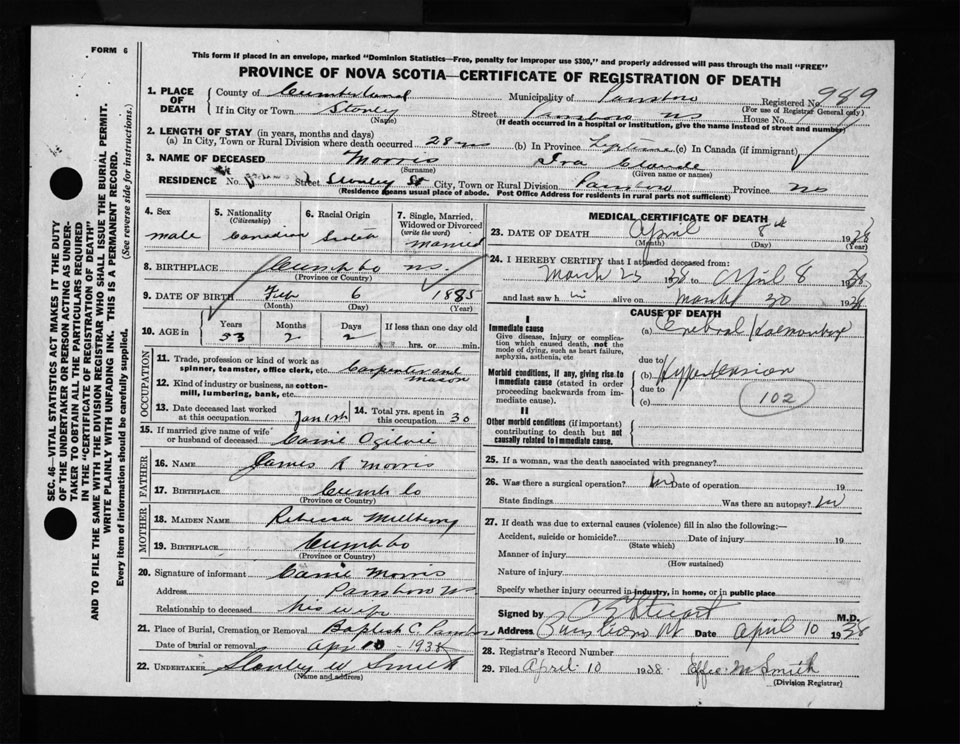 FORM 6
This form if placed in an envelope, marked "Dominion Statistics—Free, penalty for improper use $300," and properly addressed will pass through the mail "FREE"
PROVINCE OF NOVA SCOTIA—CERTIFICATE OF REGISTRATION OF DEATH
SEC. 46—VITAL STATISTICS ACT MAKES IT THE DUTY
OF THE UNDERTAKER OR PERSON ACTING AS UNDER-
TAKER TO OBTAIN ALL THE PARTICULARS REQUIRED
IN THE "CERTIFICATE OF REGISTRATION OF DEATH"
AND TO FILE THE SAME WITH THE DIVISION REGISTRAR WHO SHALL ISSUE THE BURIAL PERMIT.
WRITE PLAINLY WITH UNFADING INK. THIS IS A PERMANENT RECORD.
Every item of information should be carefully supplied. (See reverse side for instructions.)
1. PLACE OF DEATH
County of Cumberland Municipality of Parrsboro Registered No. 989
(For use of Registrar General only)
If in City or Town Stanley Street Parrsboro NS House No.
(Name) (If death occurred in a hospital or institution, give the name instead of street and number)
2. LENGTH OF STAY (in years, months and days)
(a) In City, Town or Rural Division where death occurred 28 (b) In Province Lifetime (c) In Canada (if immigrant)
3. NAME OF DECEASED Morris Ira Claude
(Surname) (Given name or names)
RESIDENCE No. Street Stanley St City, Town or Rural Division Parrsboro Province NS
(Residence means usual place of abode. Post Office Address for residents in rural parts not sufficient)
4. Sex
male
5. Nationality
(Citizenship)
Canadian
6. Racial Origin
Scotch
7. Single, Married, Widowed or Divorced
(write the word)
married
8. BIRTHPLACE Cumb Co NS.
(Province or Country)
9. DATE OF BIRTH Feb 6 1885
(Month) (Day) (Year)
10. AGE in Years Months Days If less than one day old
53 2 2 hrs. or min.
OCCUPATION
11. Trade, profession or kind of work as
spinner, teamster, office clerk, etc. Carpenter and mason
12. Kind of industry or business, as cotton-
mill, lumbering, bank, etc.
13. Date deceased last worked
at this occupation Jan 1st 14. Total yrs. spent in
this occupation 30
15. If married give name of wife
or husband of deceased Carrie Ogilvie
FATHER
16. NAME James R Morris
17. BIRTHPLACE Cumb Co
(Province or Country)
MOTHER
18. MAIDEN NAME Rebecca Millberry
19. BIRTHPLACE Cumb Co
(Province or Country)
20. Signature of informant Carrie Morris
Address Parrsboro NS
Relationship to deceased his wife
21. Place of Burial, Cremation or Removal Baptist C. Parrsboro
Date of burial or removal Apr 10 1938
22. UNDERTAKER Stanley W Smith
(Name and address)
MEDICAL CERTIFICATE OF DEATH
23. DATE OF DEATH April 8th 1938
(Month) (Day) (Year)
24. I HEREBY CERTIFY that I attended deceased from:
March 25 1938 to April 8 1938
and last saw h im alive on March 30 1938
CAUSE OF DEATH
I
Immediate cause
Give disease, injury or complication which caused death, not the mode of dying, such as heart failure, asphyxia, asthenia, etc
(a) Cerebral Haemorrhage
due to
Morbid conditions, if any, giving rise to immediate cause (stated in order proceeding backwards from immediate cause).
(b) Hypertension
due to
(c)
102
II
Other morbid conditions (if important) contributing to death but not causally related to immediate cause.
25. If a woman, was the death associated with pregnancy?
26. Was there a surgical operation? No Date of operation 19
State findings Was there an autopsy? No
27. If death was due to external causes (violence) fill in also the following:—
Accident, suicide or homicide? Date of injury 19
(State which)
Manner of injury
(How sustained)
Nature of injury
Specify whether injury occurred in industry, in home, or in public place
Signed by Stuart M.D.
Address Date April 10 1938
28. Registrar's Record Number
29. Filed April 10 1938 Effie M Smith
(Division Registrar)